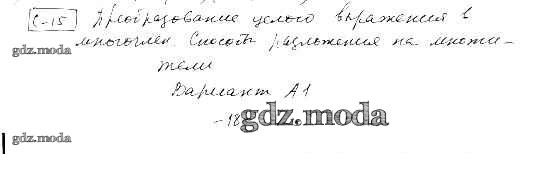 С-15 Преобразование целого выражения в
многочлен. Способы разложения на множи-
gdz.moda
тели
Вариант А1
-18
gdz.moda
gdz.moda